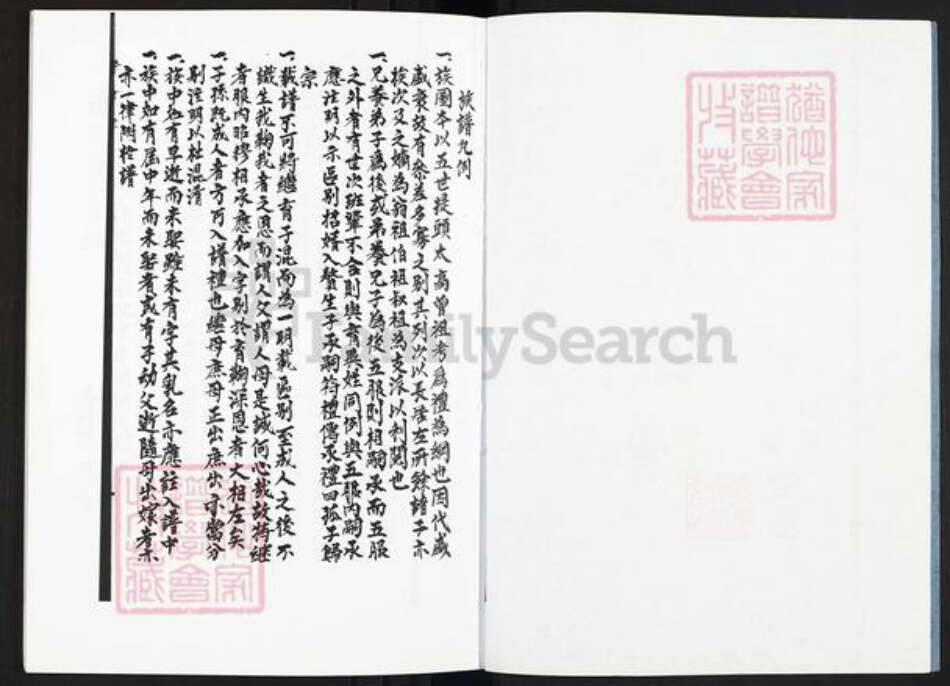 族譜凡例
一、族圖本以五世提頭太高曾祖考為禮為綱也因代盛
盛衰故有參差多寡之別其列次以長皆左所餘諸子亦
挨次及之嫡為翁祖伯祖叔祖為支派以利閱也
一、兄養弟子為後或弟養兄子為後五服則相嗣承而五服
之外者有世次班輩不合則與育異姓同例與五服內嗣承
應註明以示區別招婿入贅生子承嗣符禮傳承禮曰孤子歸
宗
一、載譜不可將繼育子混而為一明載區別至成人之後不
識生我鞠我者之恩而謂人父謂人母是誠何心哉故將繼
者服內昭穆相承應加入字別於育鞠深恩者大相左矣
一、子孫既成人者方可入譜禮也繼母庶母正出庶出亦當分
別註明以杜混淆
一、族中如有早逝而未娶雖未有字其乳名亦應註入譜中
一、族中如有屆中年而未娶者或有子幼父逝隨母出嫁者亦
亦一律附於譜
猶他家
譜學會
收藏
猶他家
譜學會
收藏
FamilySearch